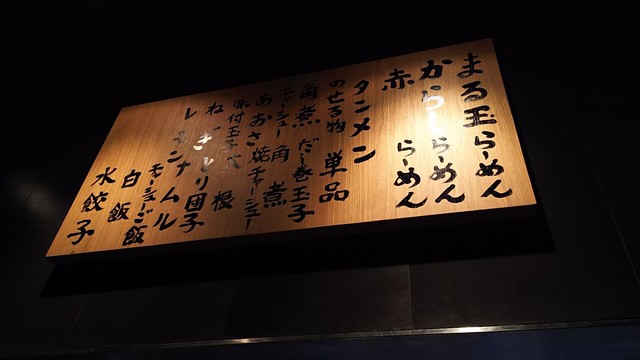 まる玉らーめん
からーらーめん
赤らーめん
タンメン
のせる物 単品
角煮 だし巻玉子
チャーシュー 角煮
あおさ 焼チャーシュー
味付玉子 大根
ねぎ とり団子
レモンナムル
チャーシューご飯
白飯
水餃子